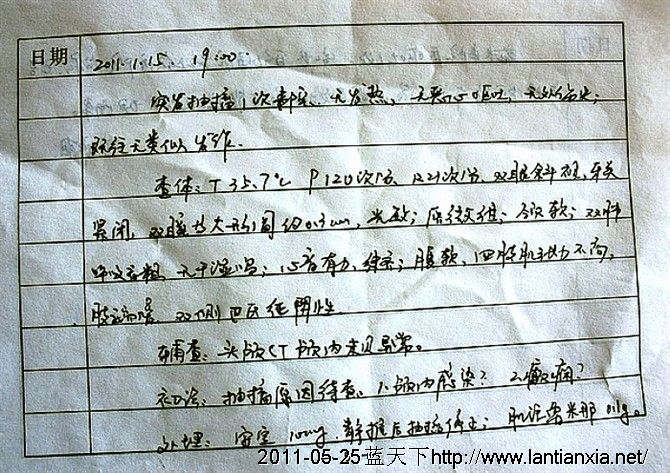 日期 2011.1.15. 19:00.
突发抽搐1次就诊. 无发热, 无恶心呕吐, 无外伤史;
既往无类似发作.
查体: T 35.7℃ P 120次/分, R 21次/分, 双眼斜视, 牙关
紧闭, 双瞳等大形圆约0.3cm, 光敏; 颈软; 双肺
呼吸音粗, 无干湿啰; 心音有力, 律齐; 腹软, 四肢肌张力不高,
双侧巴氏征阴性
辅查: 头颅CT颅内未见异常。
初诊: 抽搐原因待查: 1.颅内感染? 2.癫痫?
处理: 安定 10mg 静推后抽搐停止; 肌注鲁米那 0.1g.
2011-05-25蓝天下http://www.lantianxia.net/